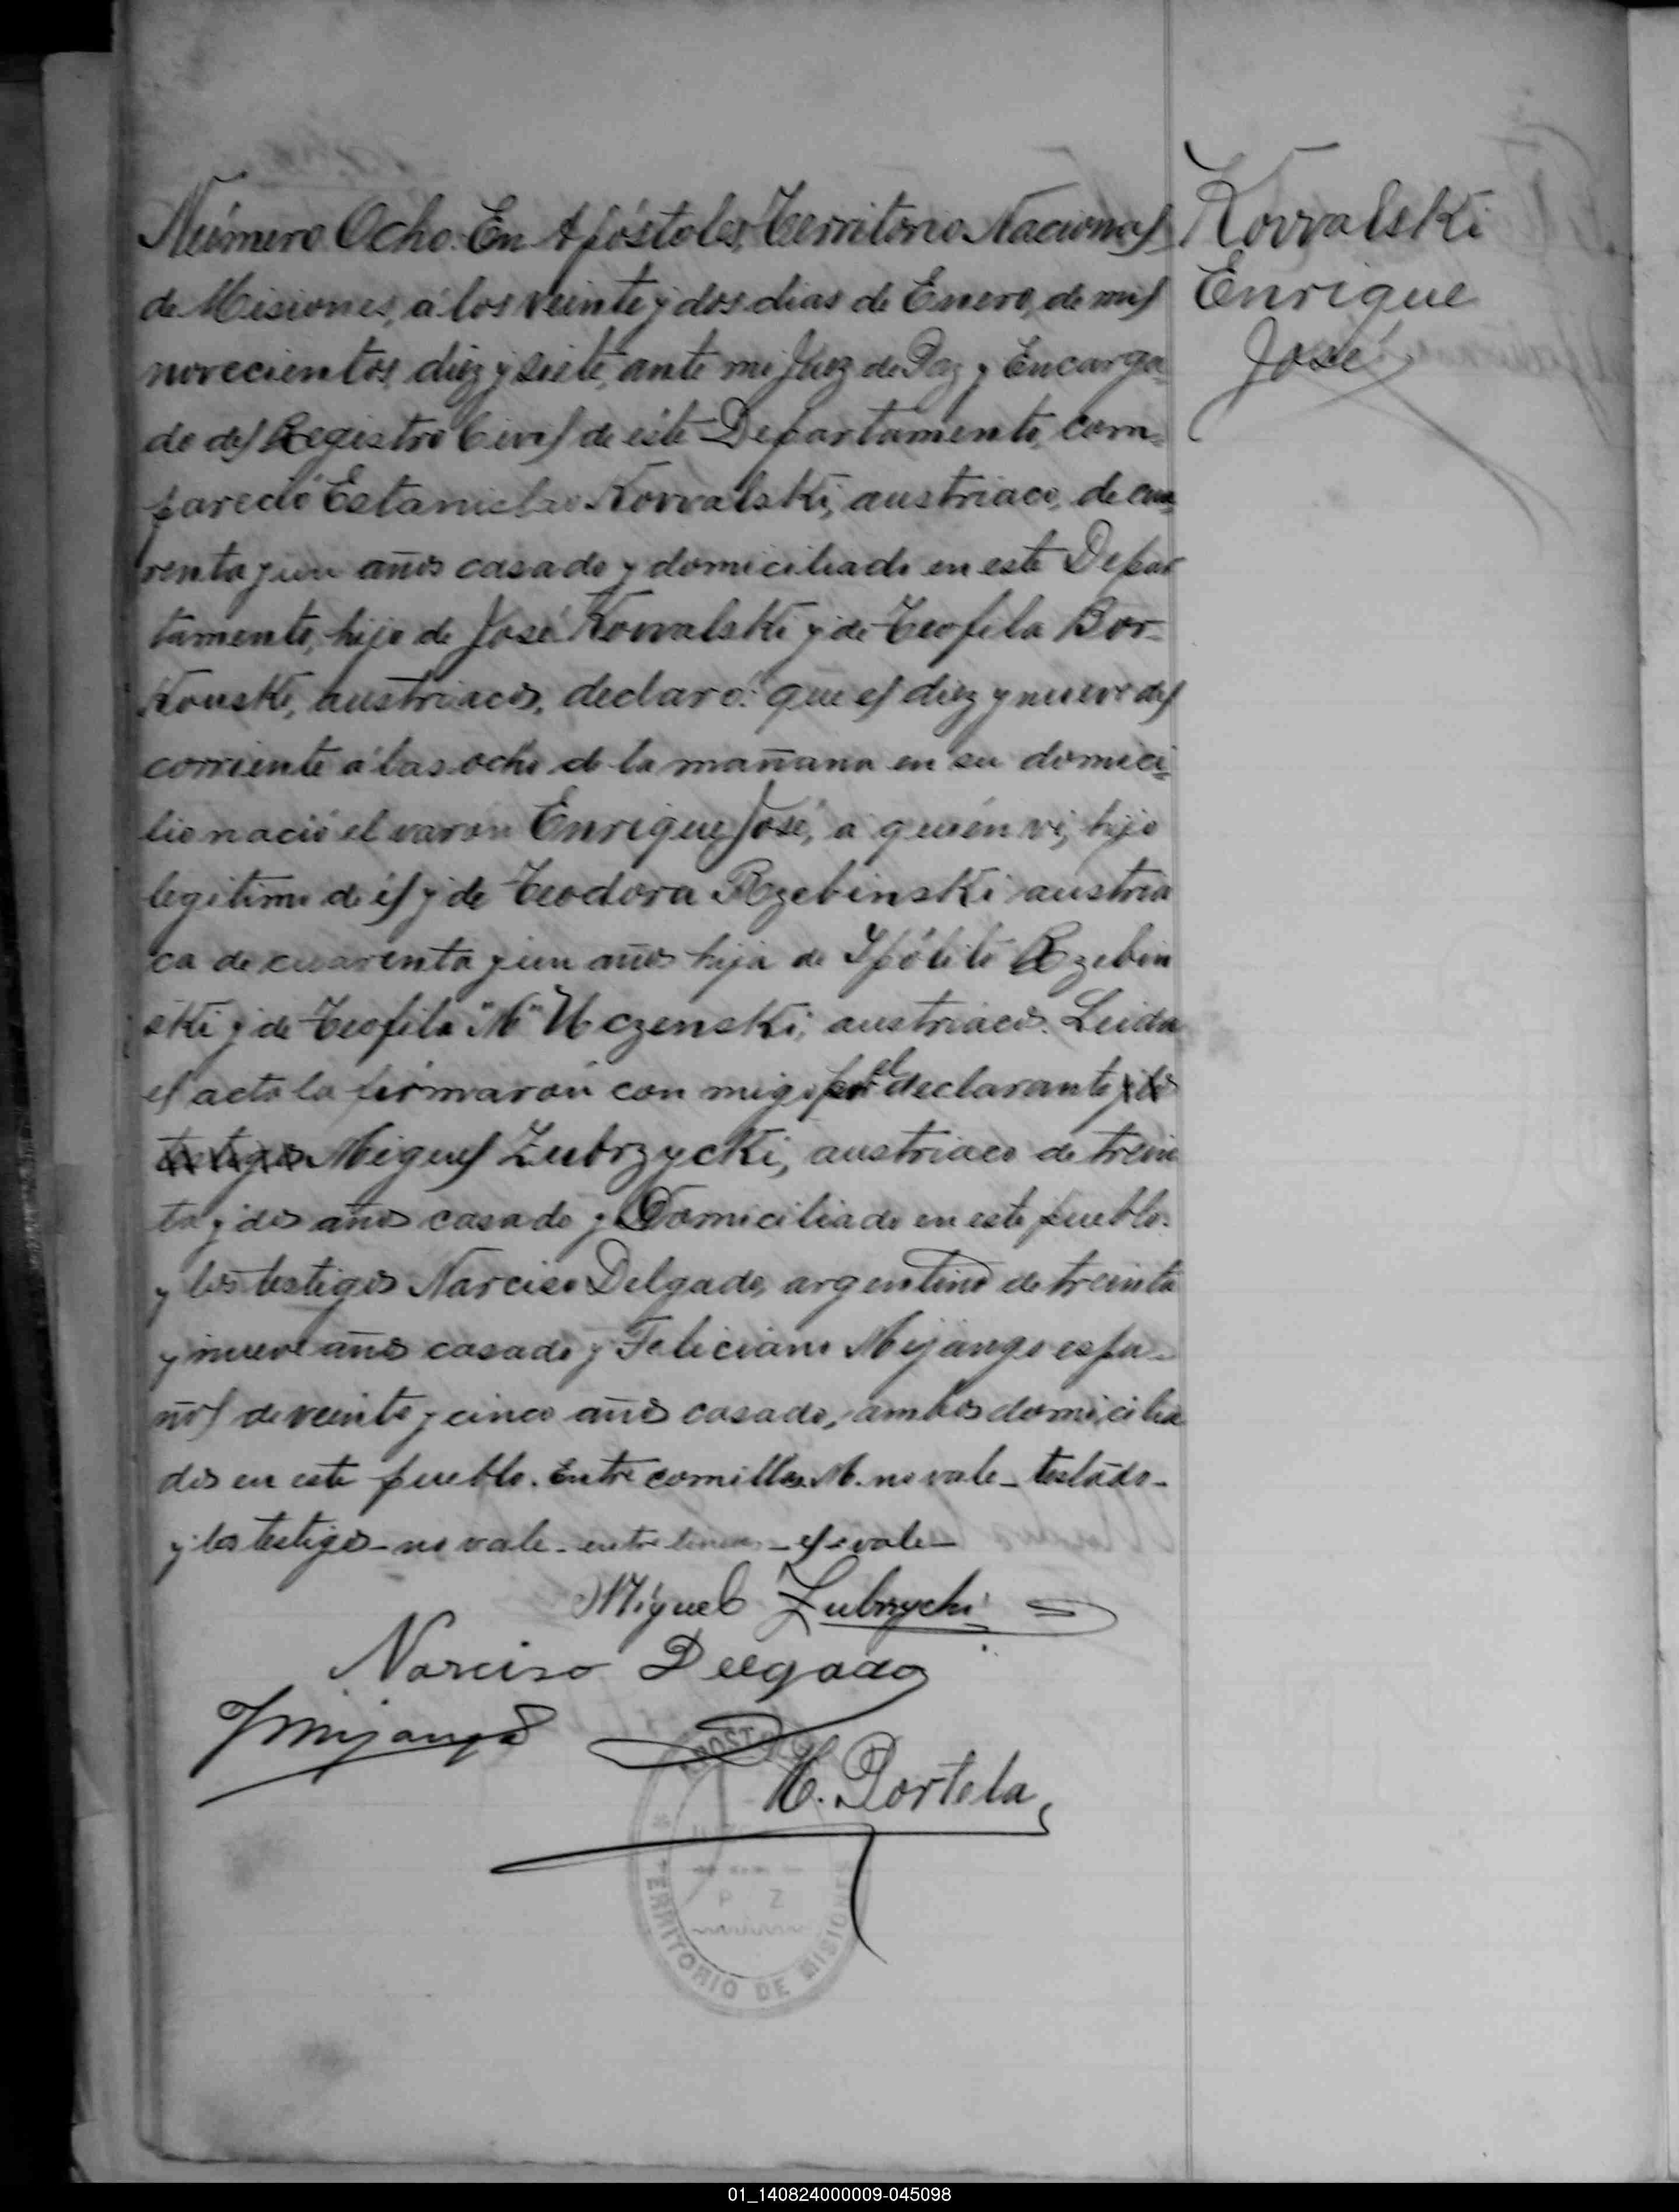 Número Ocho. En Apóstoles, Territorio Nacional
de Misiones, á los veinte y dos dias de Enero, de mil
novecientos diez y siete, ante mi Juez de Paz y Encarga-
do del Registro Civil de éste Departamento, com-
pareció Estanislao Kowalski, austriaco, de cua
renta y un años casado y domiciliado en este Depar
tamento, hijo de José Kowalski y de Teofila Bor-
Kouski, austriacos, declaró: que el diez y nueve del
corriente á las ocho de la mañana en su domici-
lio nació el varón Enrique José, a quién ví, hijo
legitimo de él y de Teodora Rzebinski austria
ca de cuarenta y un años hija de Ipólito Rzebin
ski y de Teofila "M" Uczenski, austriacos. Leida
el acta la firmarón con migo por el declarante y los
testigos Miguel Zubrzycki, austriaco de trein
ta y dos años casado y Domiciliado en este pueblo.
y los testigos Narciso Delgado, argentino de treinta
y nueve años casado y Feliciano Mijango espa-
ñol de veinte y cinco años casado, ambos domicilia
dos en este pueblo. Entre comillas. M. no vale - testado -
y los testigos - no vale - entre lineas - el - vale -
Miguel Zubrzycki
Narciso Delgado
F Mijango
M. Portela
APOSTOLES
P Z
TERRITORIO DE MISIONES
Kowalski
Enrique
José
01_140824000009-045098